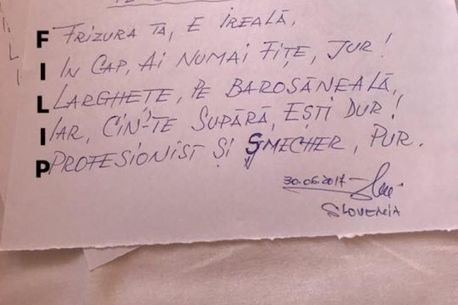 FRIZURA TA, E IREALĂ,
IN CAP, AI NUMAI FIȚE, JUR!
LARGHETE, PE BAROSĂNEALĂ,
IAR, CIN'-TE SUPĂRĂ, EȘTI DUR!
PROFESIONIST ȘI ȘMECHER, PUR.
30.06.2017
SLOVENIA